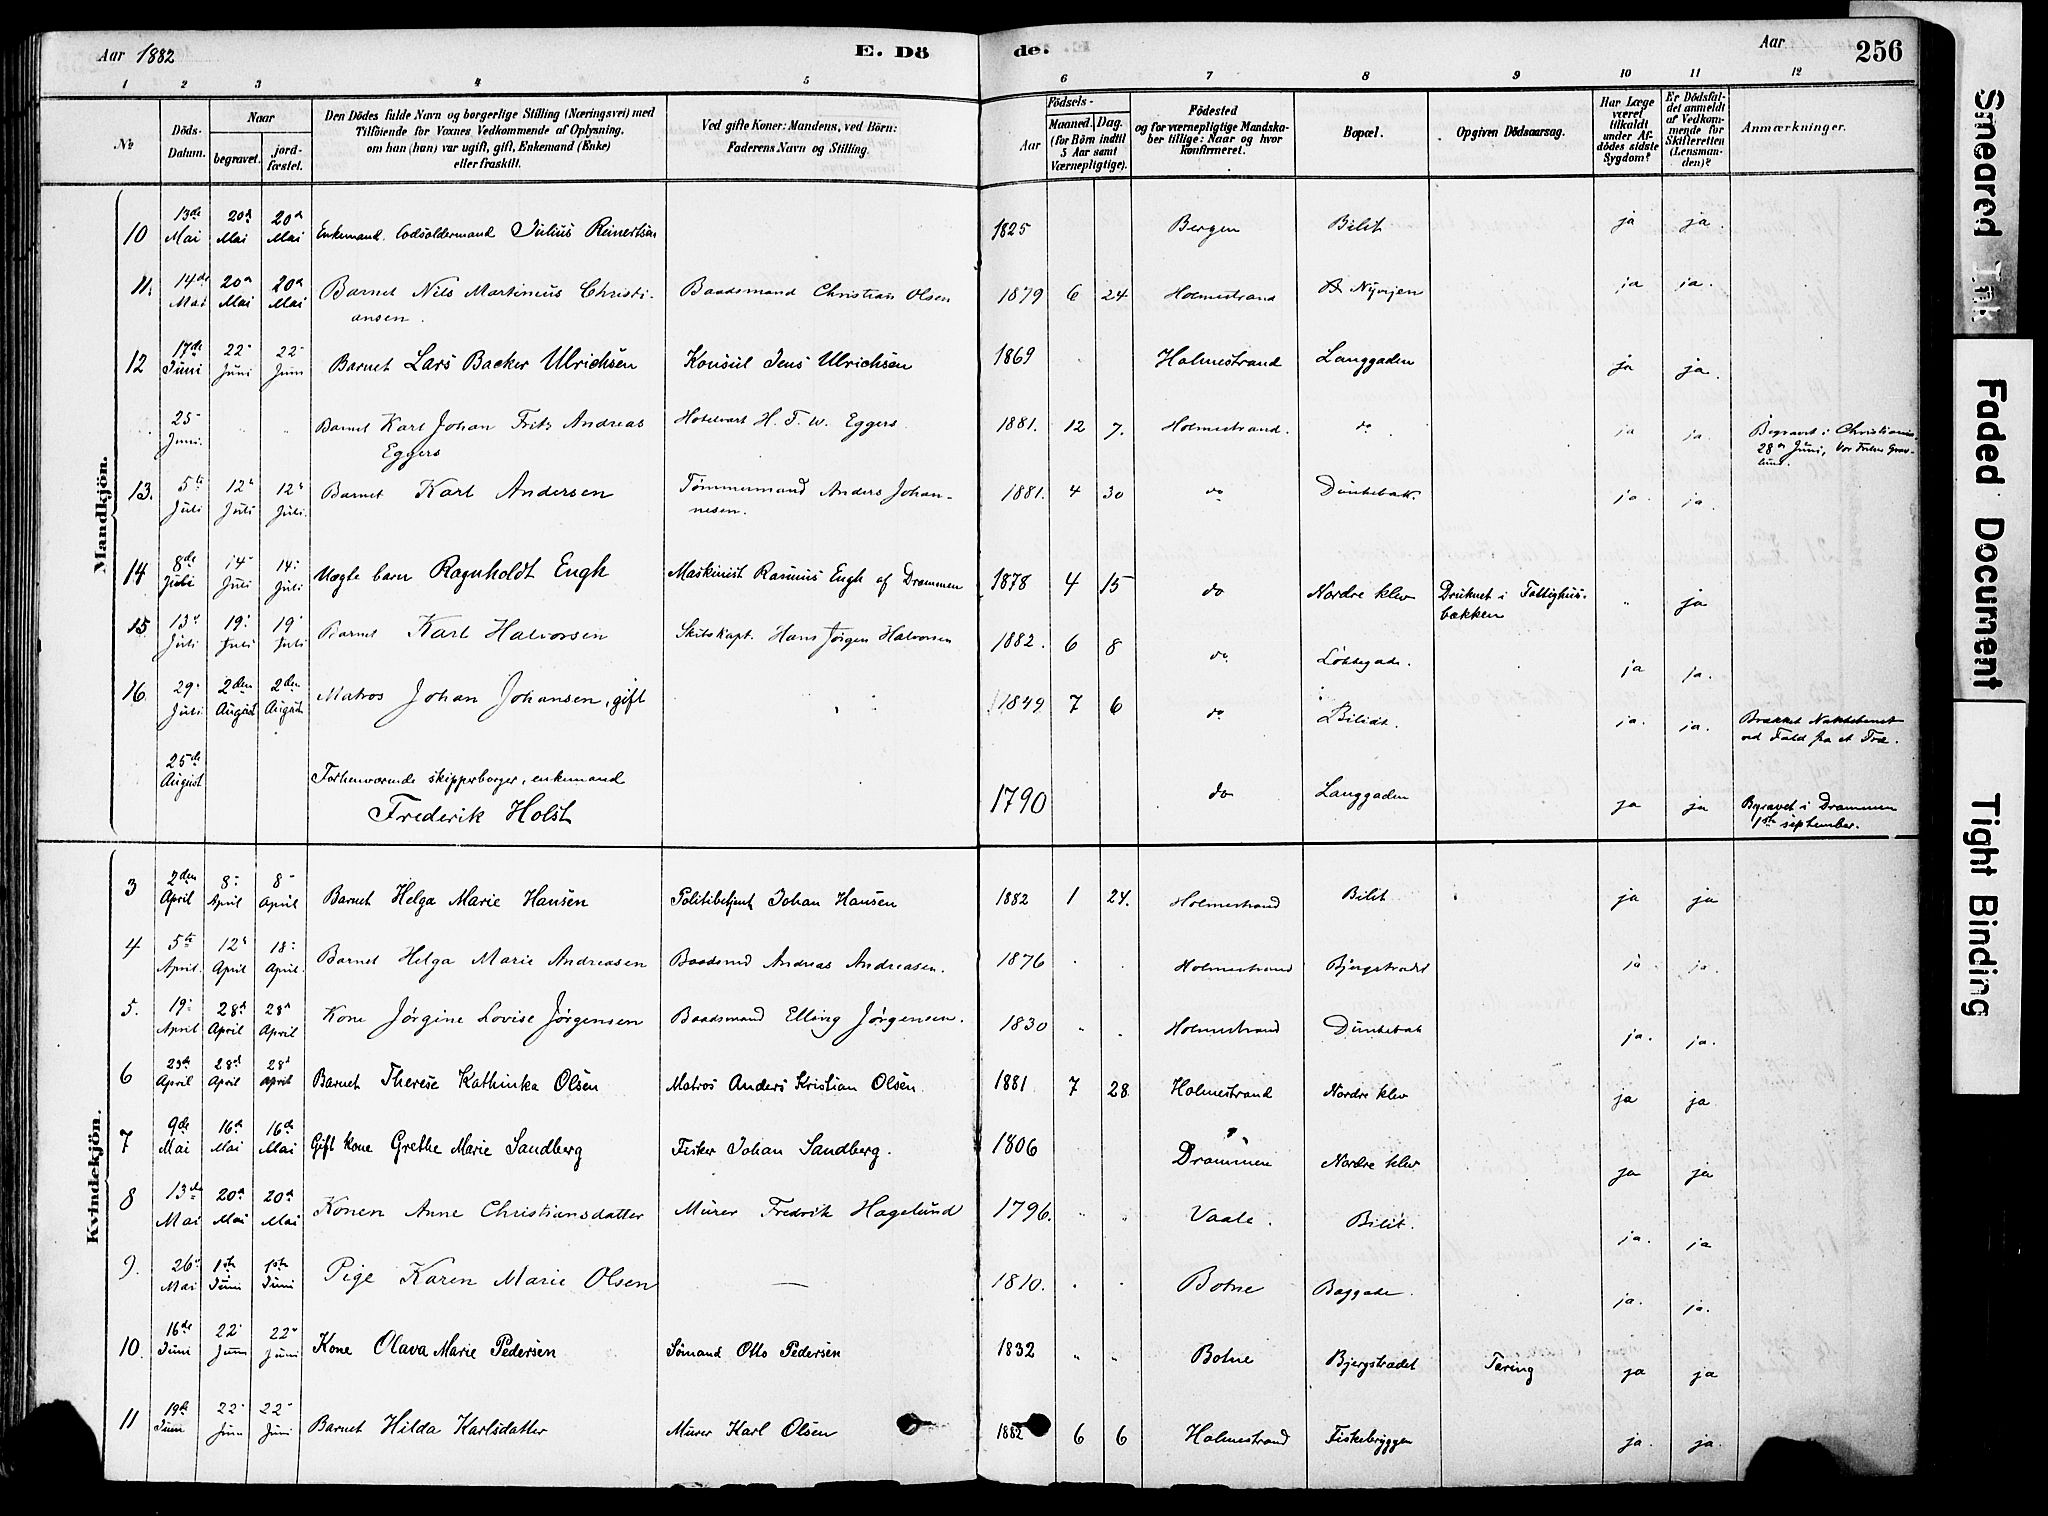 Aar 1882
E. Dö
de.
Aar
256
1 2 3 4 5 6 7 8 9 10 11 12
No
Döds-Datum.
Naar
begravet.
jordfæstet.
Den Dödes fulde Navn og borgerlige Stilling (Næringsvei) med
Tilföiende for Voxnes Vedkommende af Oplysning,
om han (hun) var ugift, gift, Enkemand (Enke)
eller fraskilt.
Ved gifte Koner: Mandens, ved Börn:
Faderens Navn og Stilling.
Födsels-
Aar
Maaned. Dag.
(for Börn indtil
5 Aar samt
Værnepligtige).
Födested
og for værnepligtige Mandskaber tillige: Naar og hvor
konfirmeret.
Bopæl.
Opgiven Dödsaarsag.
Har Læge
været
tilkaldt
under Afdödes sidste
Sygdom?
Er Dödsfaldet anmeldt
af Vedkommende for
Skifteretten
(Lensmanden)?
Anmærkninger.
Mandkjön.
10 13de Mai 20d Mai 20d Mai Enkemand Julius Reinertsen 1825 Bergen Bilit ja ja.
11. 14de Mai 20d Mai 20d Mai Barnet Nils Martinius Christiansen. Baadsmand Christian Olsen 1879 6 24 Holmestrand Nyvejen ja ja.
12 17de Juni 22 Juni 22 Juni Barnet Lars Backer Ulrichsen Konsul Jens Ulrichsen 1869 Holmestrand Langgaden ja ja.
25 Juni. Barnet Karl Johan Fritz Andreas Eggers Hotelvært H. F. W. Eggers. 1881. 12 7. Holmestrand. do ja ja. Begravet i Christiania 28d Juni, Vor Frelsers Gravlund.
13. 5te Juli 12 Juli 12 Juli. Barnet Karl Andersen Tømmermand Anders Johannesen. 1881. 4 30 do Dunkebak. ja. ja.
14 8de Juli 14 Juli 14 Juli Uægte barn Ragnholdt Engh Maskinist Rasmus Engh af Drammen 1878 4 15 do Nordre klev Druknet i Fattighusbækken " ja
15 13 Juli 19 Juli 19 Juli Barnet Karl Halvorsen Skibskapt. Hans Jørgen Halvorsen 1882. 6 8 do ja ja.
16. 29 Juli 2den August 2den August Matros Johan Johansen, gift 1849 7 6 do Bilidt. ja. ja. Brækket Nakkebenet ved Fald fra et Træ.
25de August Forhenværende skipperborger, enkemand Frederik Holst 1790 do Langgaden ja ja Begravet i Drammen 1ste september.
Kvindekjön.
3 2den April 8 April 8 April Barnet Helga Marie Hansen Politibetjent Johan Hansen 1882 1 24. Holmestrand Bilit ja ja
4 5te April. 12 April 18 April. Barnet Helga Marie Andreasen Baadsmd Andreas Andreasen. 1876 Holmestrand Bjergstrædet ja. ja.
5. 19 April 28d April 28d April Kone Jørgine Lovise Jørgensen Baadsmand Elling Jørgensen. 1830 Holmestrand Dunkebak ja. ja.
6 23de April 28d April 28d April Barnet Therese Kathinka Olsen Matros Anders Kristian Olsen. 1881 7 28 Holmestrand Nordre klev ja ja
7 9de Mai 16d Mai 16de Mai Gift kone Grethe Marie Sandberg Fisker Johan Sandberg. 1806 ? Drammen Nordre klev ja ja
8 13de Mai 20d Mai 20d Mai Konen Anne Christiansdatter Murer Fredrik Hagelund 1796. " " Vaale. Bilit. ja. ja
9. 26 Mai 1ste Juni 1ste Juni Pige Karen Marie Olsen — 1810. Botne Baggade. ja. ja.
10. 16de Juni 22 Juni 22 Juni Kone Olava Marie Pedersen Sømand Otto Pedersen 1832 " " Botne Bjergstrædet Tæring ja ja
11 19de Juni 22 Juni 22 Juni Barnet Hilda Karlsdatter Murer Karl Olsen 1882 6 6 Holmestrand Fiskebryggen ja. ja.
Smeared Ink
Faded Document
Tight Binding